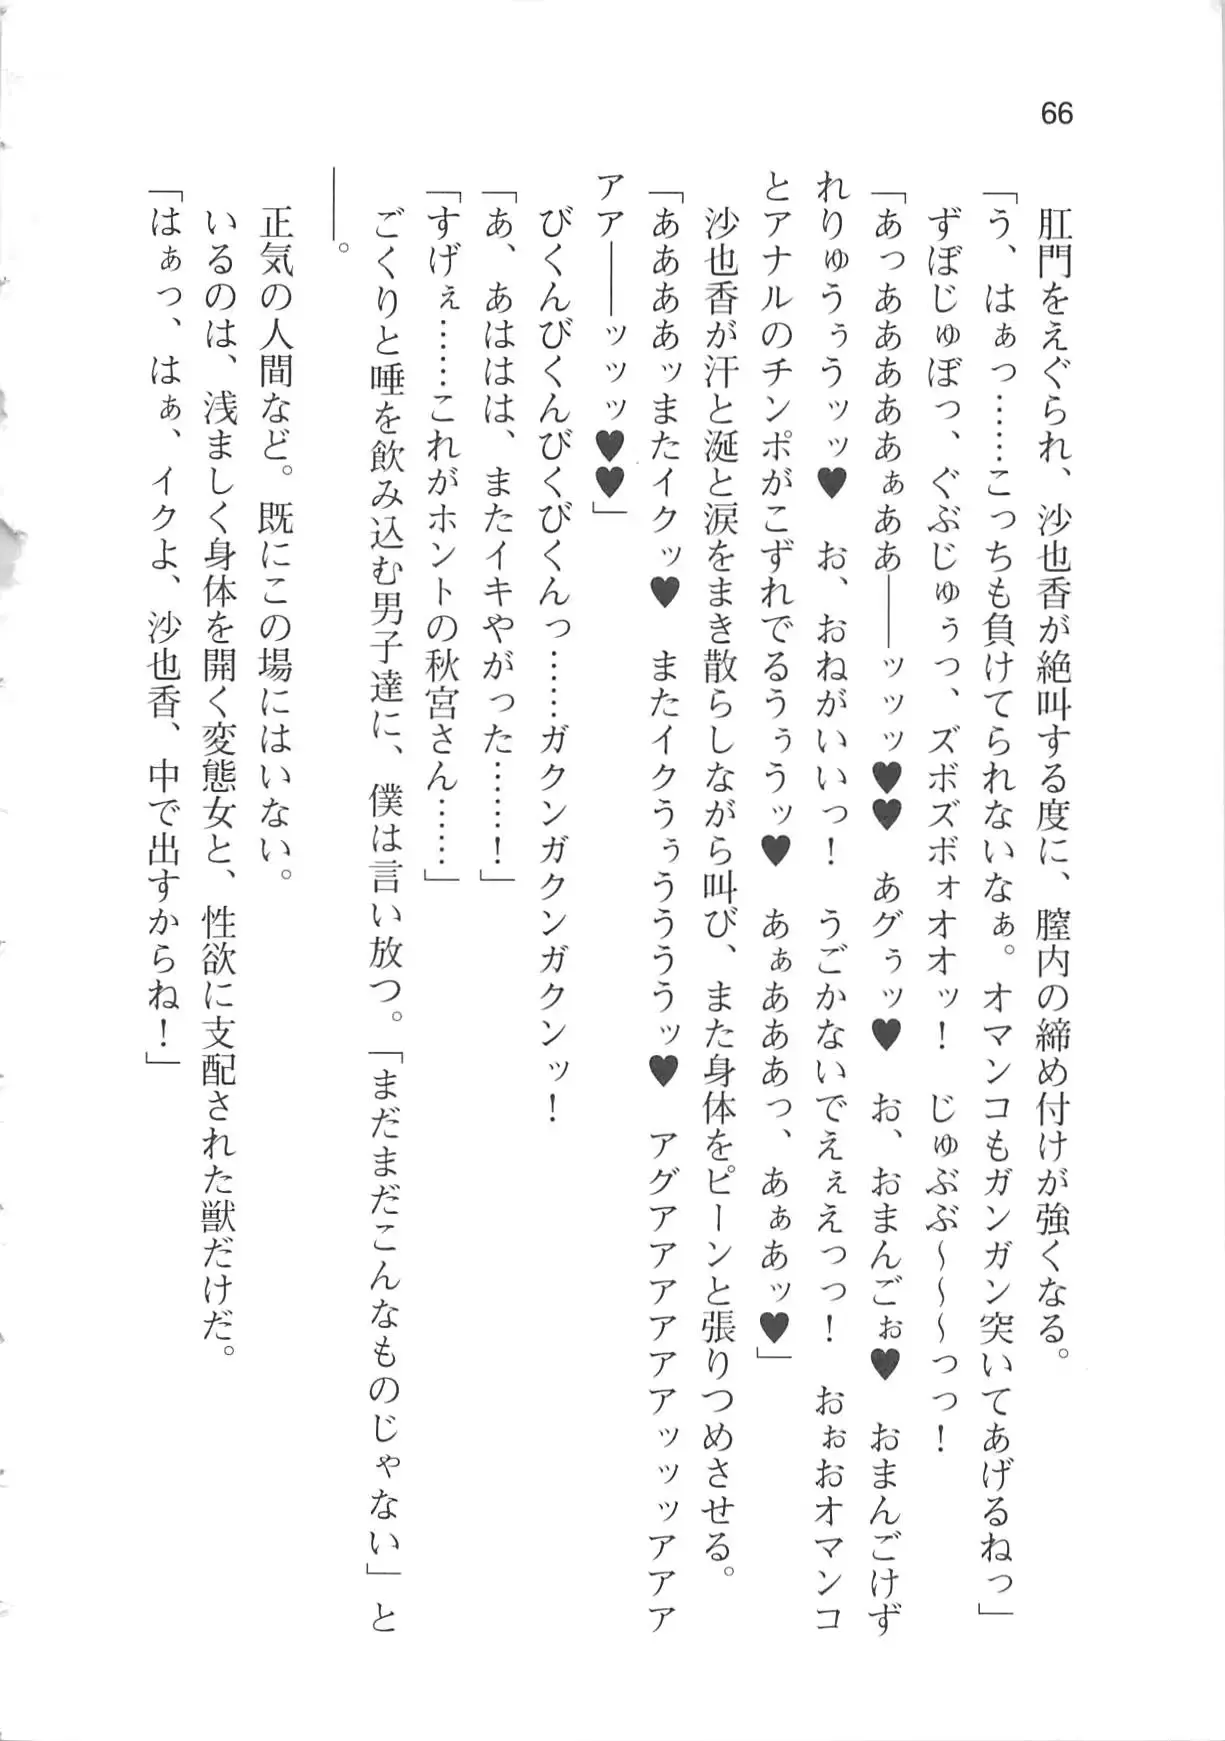 66
肛門をえぐられ、沙也香が絶叫する度に、膣内の締め付けが強くなる。
「う、はぁっ……こっちも負けてられないなぁ。オマンコもガンガン突いてあげるねっ」
ずぼじゅぼっ、ぐぶじゅぅっ、ズボズボォオオッ！　じゅぶぶ～～～っっ！
「あっああああああぁああ――ッッッ♥♥　あグぅッ♥　お、おまんごぉ♥　おまんごけず
れりゅうぅうッッ♥　お、おねがいいっ！　うごかないでえぇえっっ！　おぉおオマンコ
とアナルのチンポがこずれでるうぅうッ♥　あぁあああっ、あぁあッ♥」
沙也香が汗と涎と涙をまき散らしながら叫び、また身体をピーンと張りつめさせる。
「ああああッまたイクッ♥　またイクうぅうううッ♥　アグアアアアアアッッッアアア
アア――ッッッ♥♥」
びくんびくんびくびくんっ……ガクンガクンガクンッ！
「あ、あははは、またイキやがった……！」
「すげぇ……これがホントの秋宮さん……」
ごくりと唾を飲み込む男子達に、僕は言い放つ。「まだまだこんなものじゃない」と
――。
正気の人間など。既にこの場にはいない。
いるのは、浅ましく身体を開く変態女と、性欲に支配された獣だけだ。
「はぁっ、はぁ、イクよ、沙也香、中で出すからね！」